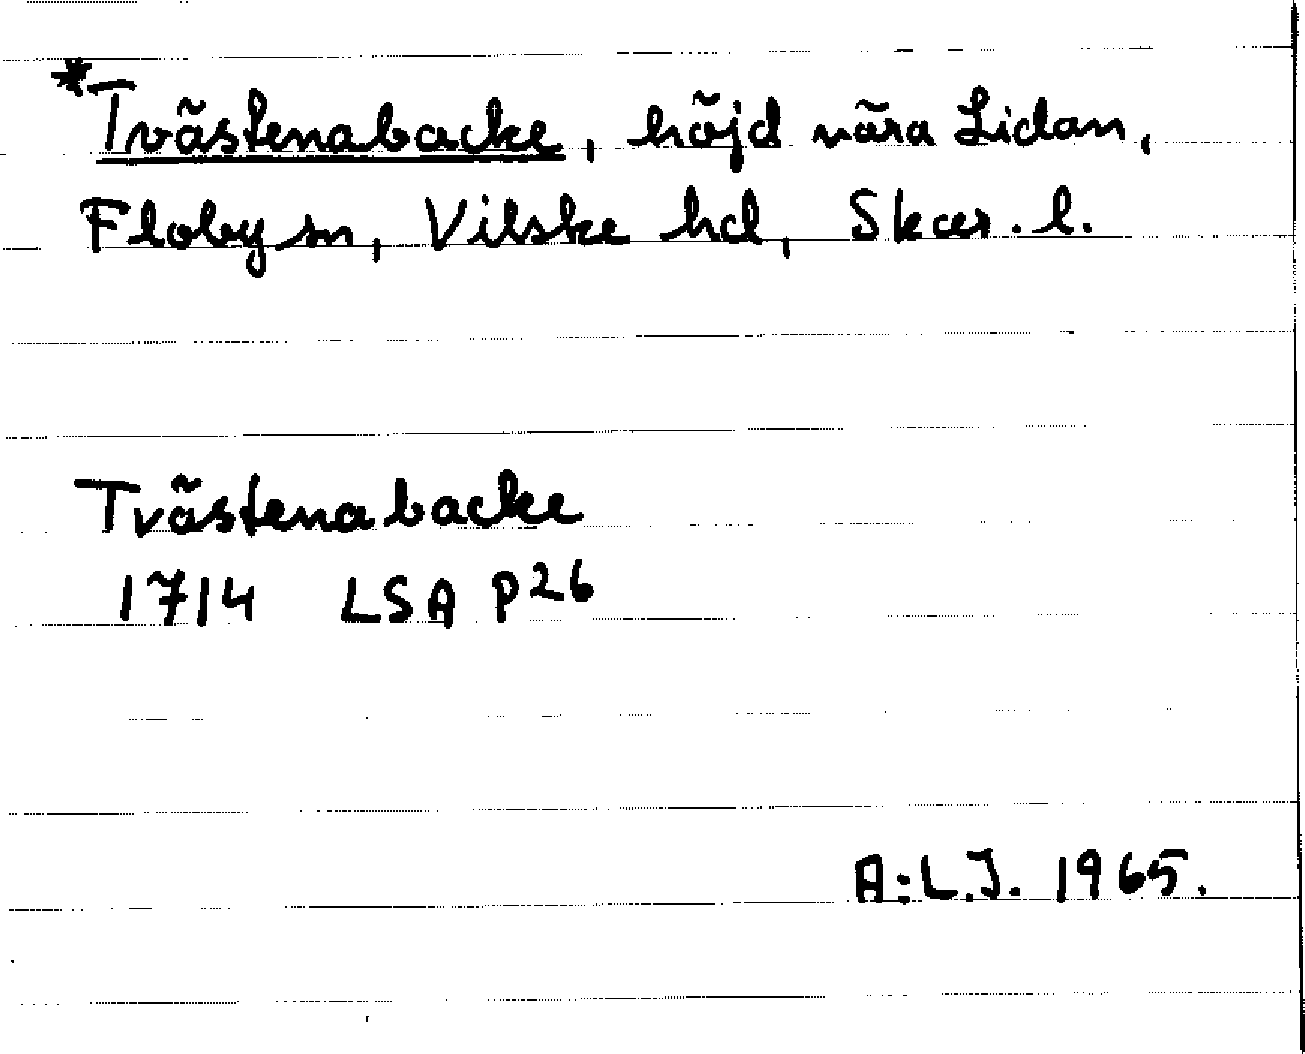 *Tvästenabacke, höjd nära Lidan,
Floby sn, Vilske hd, Skar. l.
Tvästenabacke
1714 LSA P26
A:L.J. 1965.